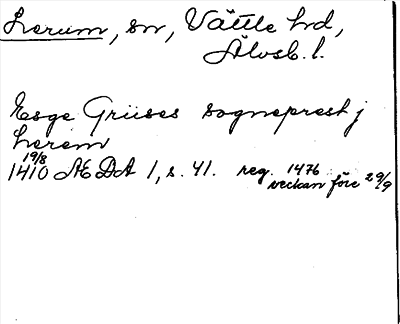 Lerum, sn, Vättle hd,
Älvsb. l.
Esge Grüses sogneprest j
Lerem
19/8
1410 ÆDA 1, s. 41. reg. 1476
veckan före 29/9